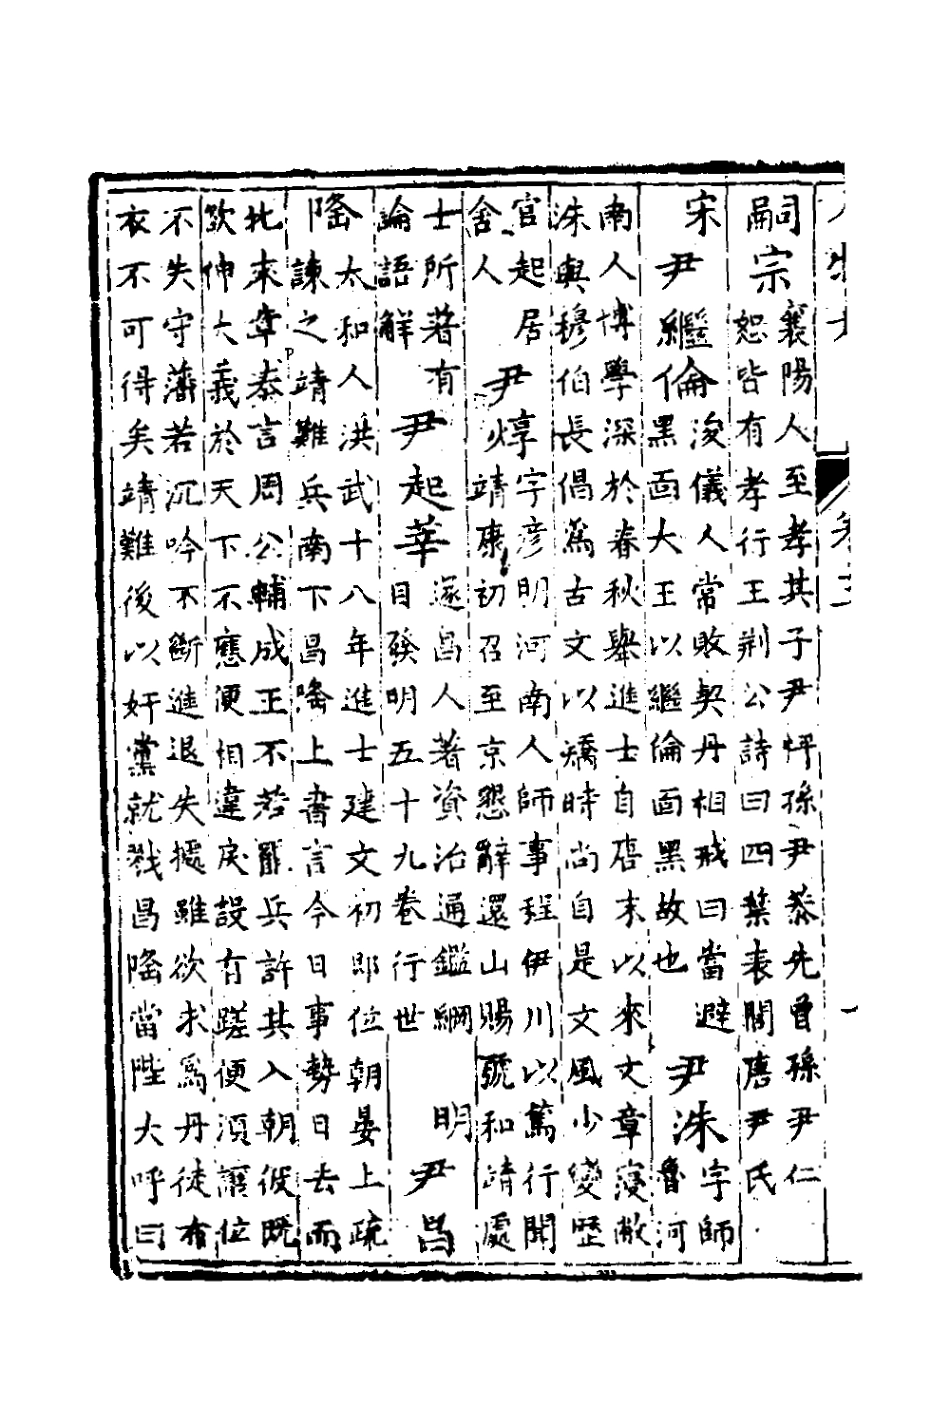 嗣宗
襄陽人至孝其子尹怦孫尹恭先曾孫尹仁
恕皆有孝行王荆公詩曰四葉表閭唐尹氏
宋
尹繼倫
浚儀人常敗契丹相戒曰當避
黑面大王以繼倫面黑故也
尹洙
字師
魯河
南人博學深於春秋舉進士自唐末以來文章寖敝
洙與穆伯長倡爲古文以矯時尚自是文風少變歷
官起居
舍人
尹焞
字彦明河南人師事程伊川以篤行聞
靖康初召至京懇辭還山賜號和靖處
士所著有
論語解
尹起莘
遂昌人著資治通鑑綱
目發明五十九卷行世
明
尹昌
隆
太和人洪武十八年進士建文初即位朝晏上疏
諫之靖難兵南下昌隆上書言今日事勢日去而
北來章奏言周公輔成王不若罷兵許其入朝彼既
欲伸大義於天下不應便相違戾設有蹉便須讓位
不失守藩若沉吟不斷進退失據雖欲求爲丹徒布
衣不可得矣靖難後以奸黨就戮昌隆當陛大呼曰